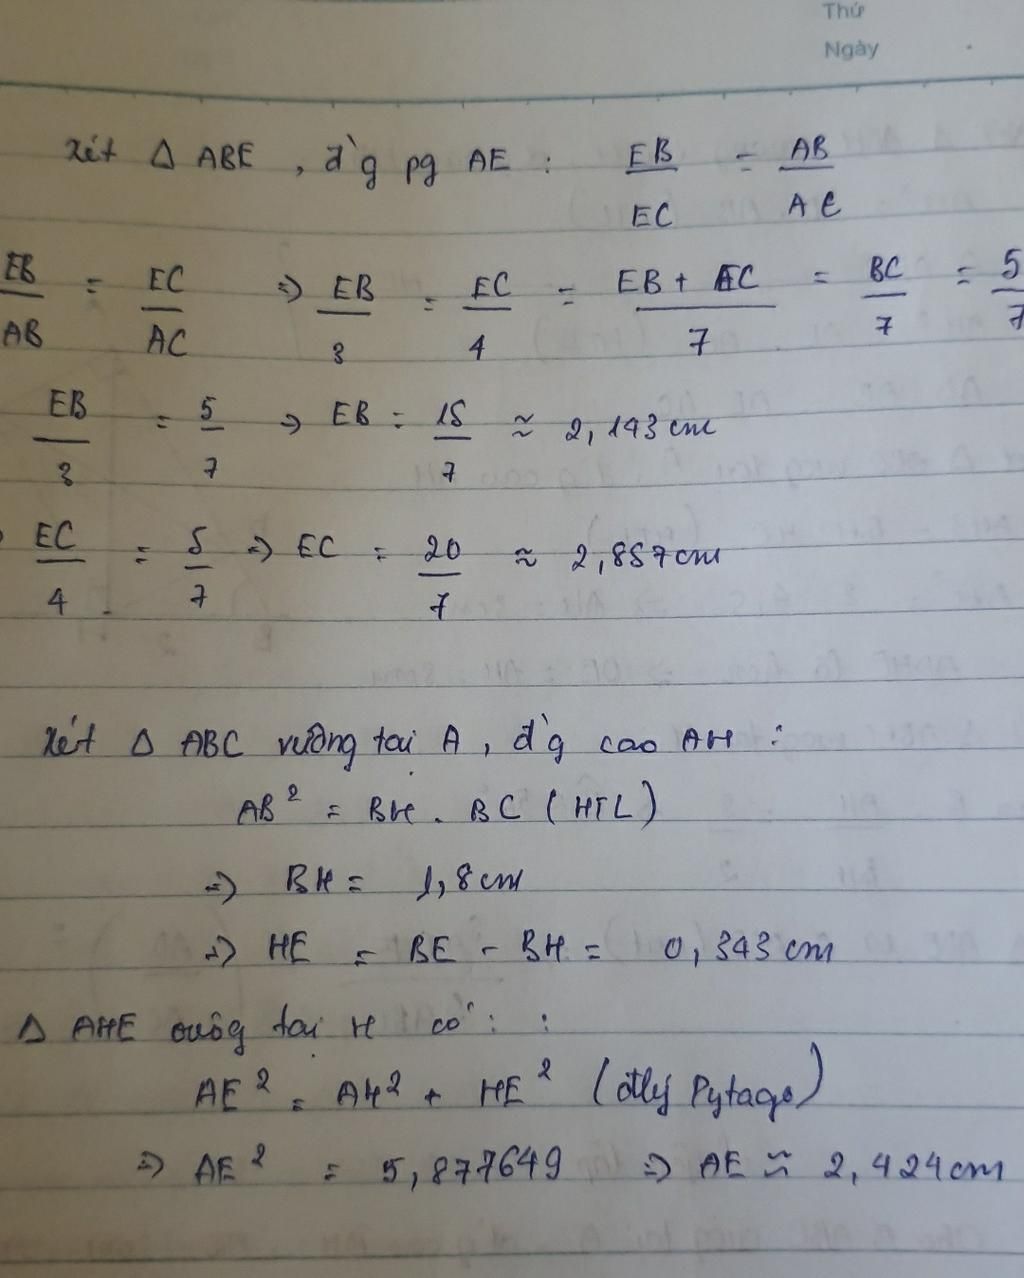 Thứ
Ngày
Xét Δ ABE, đ`g pg AE : EB/EC = AB/AC
EB/AB = EC/AC => EB/3 = EC/4 = EB + EC/7 = BC/7 = 5/7
EB/3 = 5/7 => EB = 15/7 ≈ 2,143 cm
EC/4 = 5/7 => EC = 20/7 ≈ 2,857cm
Xét Δ ABC vuông tại A, đ`g cao AH :
AB² = BH . BC (HTL)
=> BH = 1,8 cm
=> HE = BE - BH = 0,343 cm
Δ AHE vuôg tại H có : :
AE² = AH² + HE² (đlý Pytago)
=> AE² = 5,877649 => AE ≈ 2,424 cm